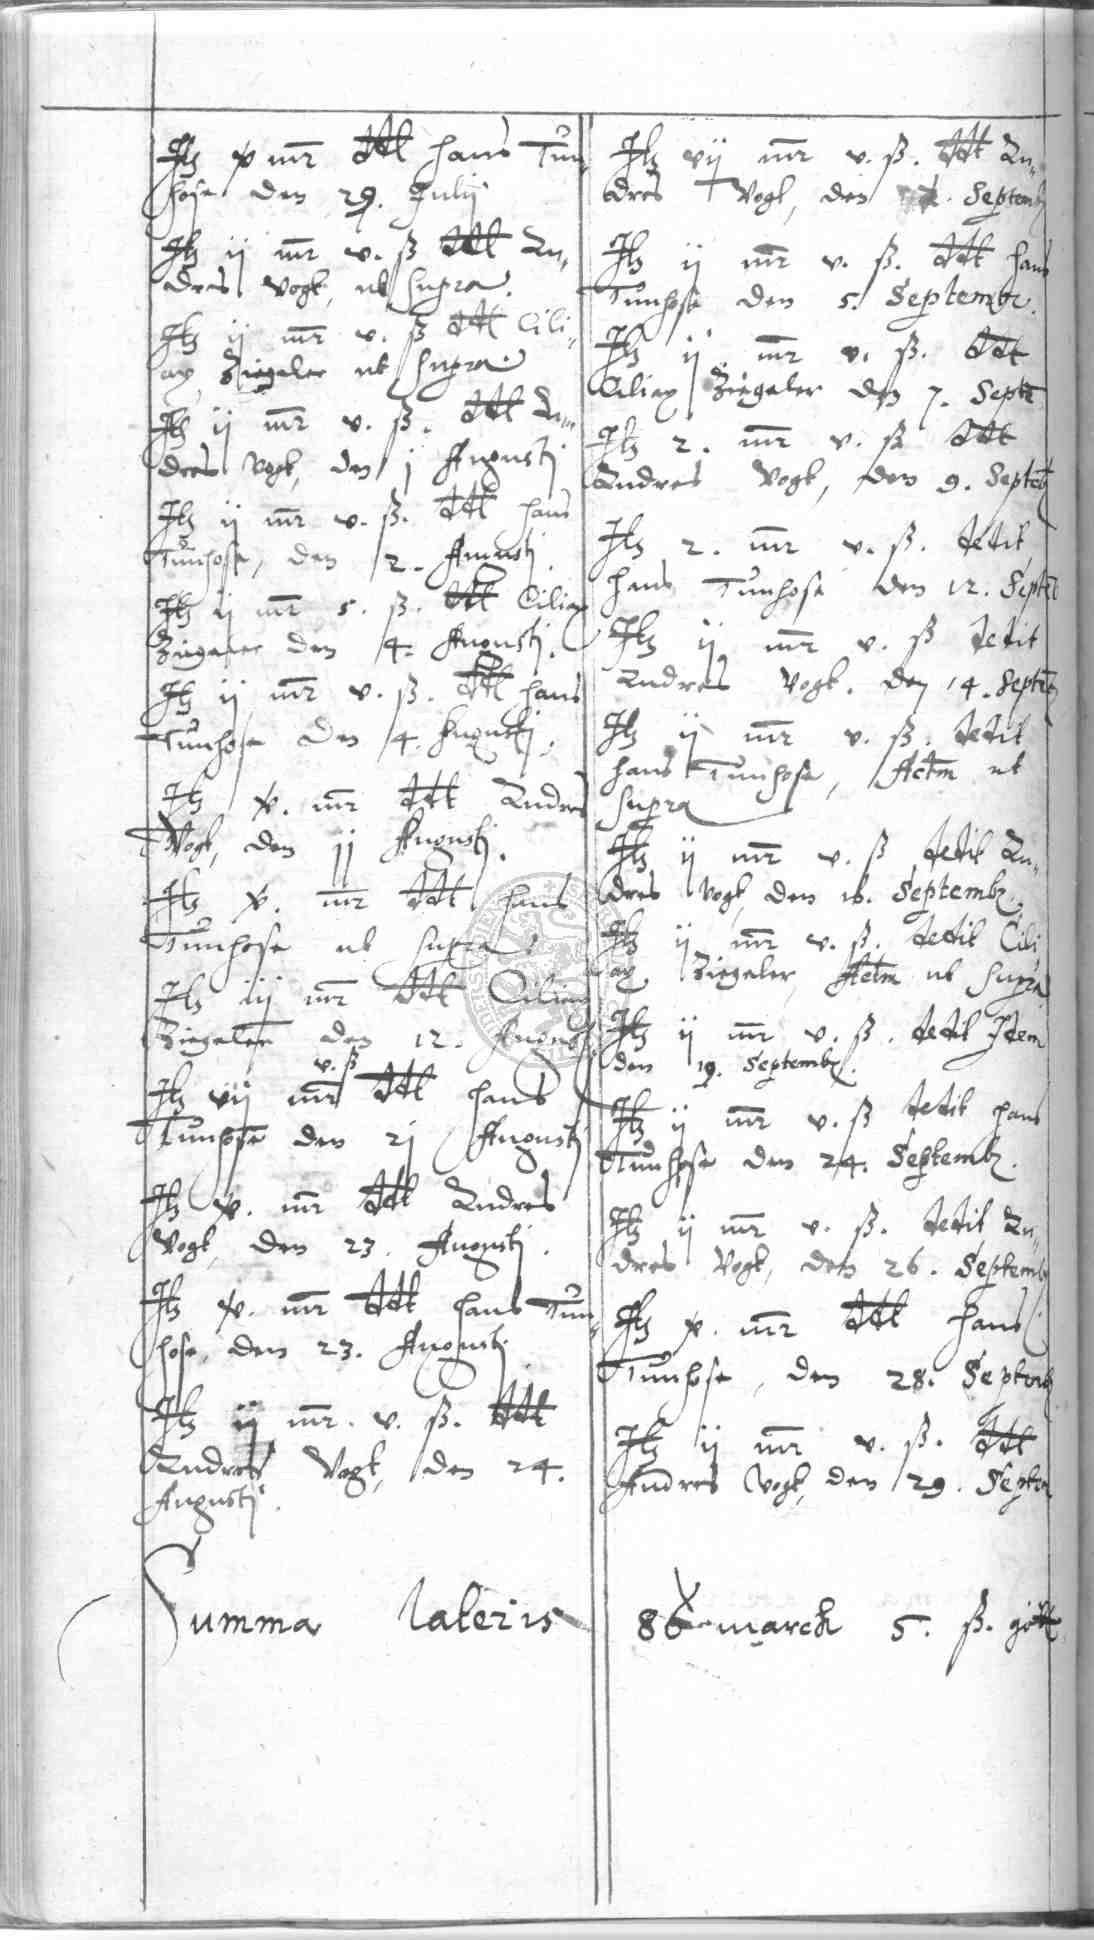 Itz v mr dtt hans Tun
hose den 29. Julij
Itz ij mr v. ß dtt An„
dres Vogt, ut supra.
Itz ij mr v. ß dtt Cili„
ax Ziegeler ut supra.
Itz ij mr v. ß. dtt An„
dres Vogt, den j Augustj
Itz ij mr v. ß. dtt hans
Tunhose, den 2. Augustj.
Itz ij mr 5. ß. dtt Ciliax
Ziegeler den 4. Augustj.
Itz ij mr v. ß. dtt hans
Tunhose den 4. Augustj.
Itz v. mr dtt Andres
Vogt, den jj Augustj.
Itz v. mr dtt hans
Tunhose ut supra
Itz iij mr dtt Ciliax
Ziegeler den 12. Augustj.
v. ß
Itz vij mr dtt hans
Tunhose den 2j Augustj
Itz v. mr dtt Andres
Vogt, den 23. Augustj.
Itz v. mr dtt hans Tun„
hose, den 23. Augustj
Itz ij mr. v. ß. dtt
Andres Vogt, den 24.
Augustj.
Itz vij mr v. ß. dtt An„
dres Vogt, den Septemb
Itz ij mr v. ß. dtt hans
Tunhose den 5. Septembr.
Itz ij mr v. ß. dtt
Ciliax Ziegeler den 7. Septe
Itz 2. mr v. ß dtt
Andres Vogt, den 9. Septeb
Itz 2. mr v. ß. dedit
hans Tunhose den 12. Septe
Itz ij mr v. ß dedit
Andres Vogt. den 14. Septeb
Itz ij mr v. ß. dedit
hans Tunhose, Actm ut
supra
Itz ij mr v. ß dedit An„
dres Vogt, den 16. Septemb.
Itz ij mr v. ß. dedit Cili
ax Ziegeler, Actm ut supra
Itz ij mr v. ß. dedit Idem
den 19. Septemb.
Itz ij mr v. ß dedit hans
Tunhose den 24. Septemb.
Itz ij mr v. ß. dedit An„
dres Vogt, den 26. Septemb
Itz v. mr dtt hans
Tunhose, den 28. Septemb
Itz ij mr v. ß. dtt
Andres Vogt, den 29. Septem
Summa lateris 86 marck 5. ß. gött